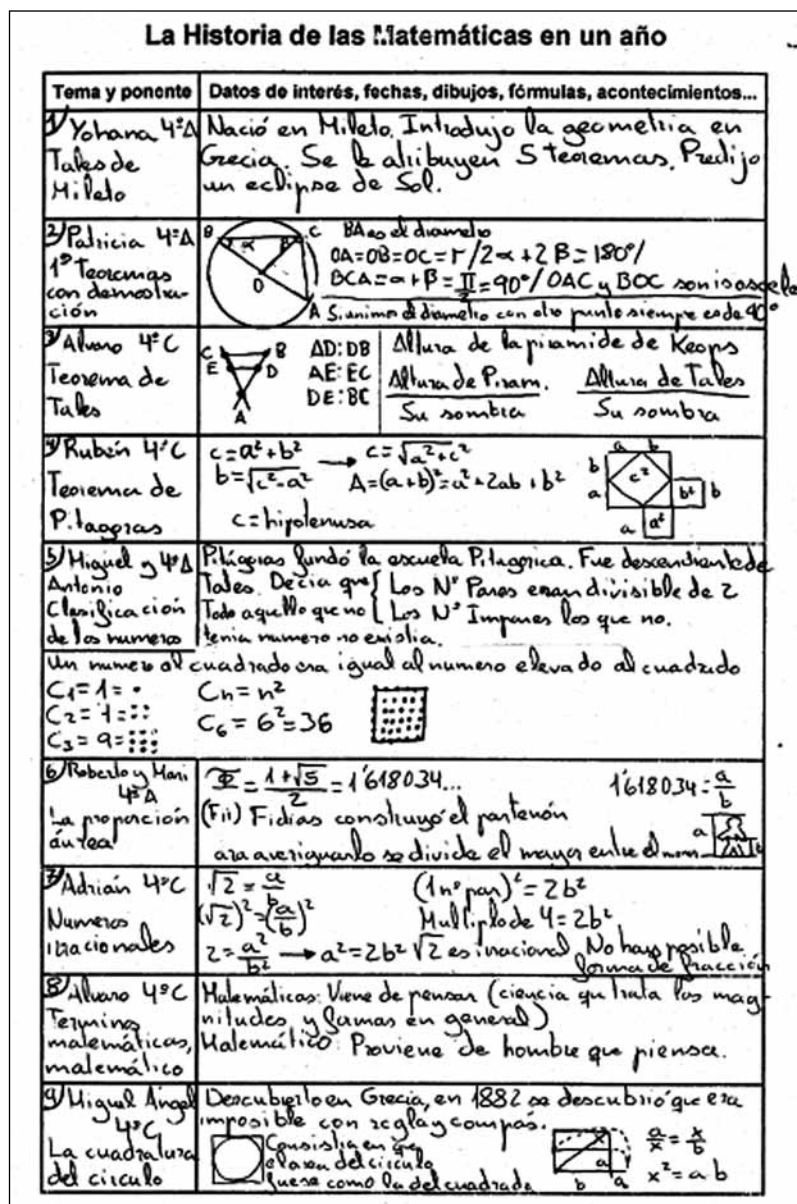 La Historia de las Matemáticas en un año
Tema y ponente
Datos de interés, fechas, dibujos, fórmulas, acontecimientos...
1) Yohana 4ºA
Tales de
Mileto
Nació en Mileto. Introdujo la geometria en
Grecia. Se le atribuyen 5 teoremas. Predijo
un eclipse de Sol.
2) Patricia 4ºA
1º Teoremas
con demostra-
ción
B C α β O A
BA es el diametro
OA=OB=OC=r/2α+2β=180º/
BCA=α+β=π/2=90º/OAC y BOC son isoscele
Si unimos el diametro con otro punto siempre es de 90º
3) Alvaro 4ºC
Teorema de
Tales
C B
E D
A
AD:DB
AE:EC
DE:BC
Altura de la piramide de Keops
Altura de Piram. Altura de Tales
Su sombra Su sombra
4) Rubén 4ºC
Teorema de
Pitagoras
c=a²+b² → c=√a²+c²
b=√c²-a² A=(a+b)²=a²+2ab+b²
c=hipotenusa
a b
b c² b² b
a
a a²
5) Miguel y 4ºA
Antonio
Clasificación
de los numeros
Pitágoras fundó la escuela Pitagorica. Fue descendiante de
Tales. Decia que { Los Nº Pares eran divisible de 2
Todo aquello que no { Los Nº Impares los que no.
tenia numero no existia.
Un numero al cuadrado era igual al numero elevado al cuadrado
C₁=1=· Cn=n²
C₂=4=:: C₆=6²=36
C₃=9=:::
6) Roberto y Mari
4ºA
La proporción
áurea
Φ=1+√5/2=1'618034... 1'618034=a/b
(Fii) Fidias construyó el partenón
a
ara averiguarlo se divide el mayor entre el men
7) Adrián 4ºC
Numeros
iracionales
√2=a/b (1 nº par)²=2b²
(√2)²=(a/b)² Multiplo de 4=2b²
2=a²/b² → a²=2b² √2 es iracional No hay posible
forma de fracción
8) Alvaro 4ºC
Terminos
matemáticas,
matemático
Matemáticas: Viene de pensar (ciencia qu trata las mag-
nitudes y formas en general)
Matemático: Proviene de hombre que piensa.
9) Miguel Angel
4ºC
La cuadratura
del circulo
Descubierto en Grecia, en 1882 se descubrió que era
imposible con regla y compás.
Consistia en que
el area del circulo
fuese como la del cuadrado
x a
b a
a/x=x/b
x²=a·b